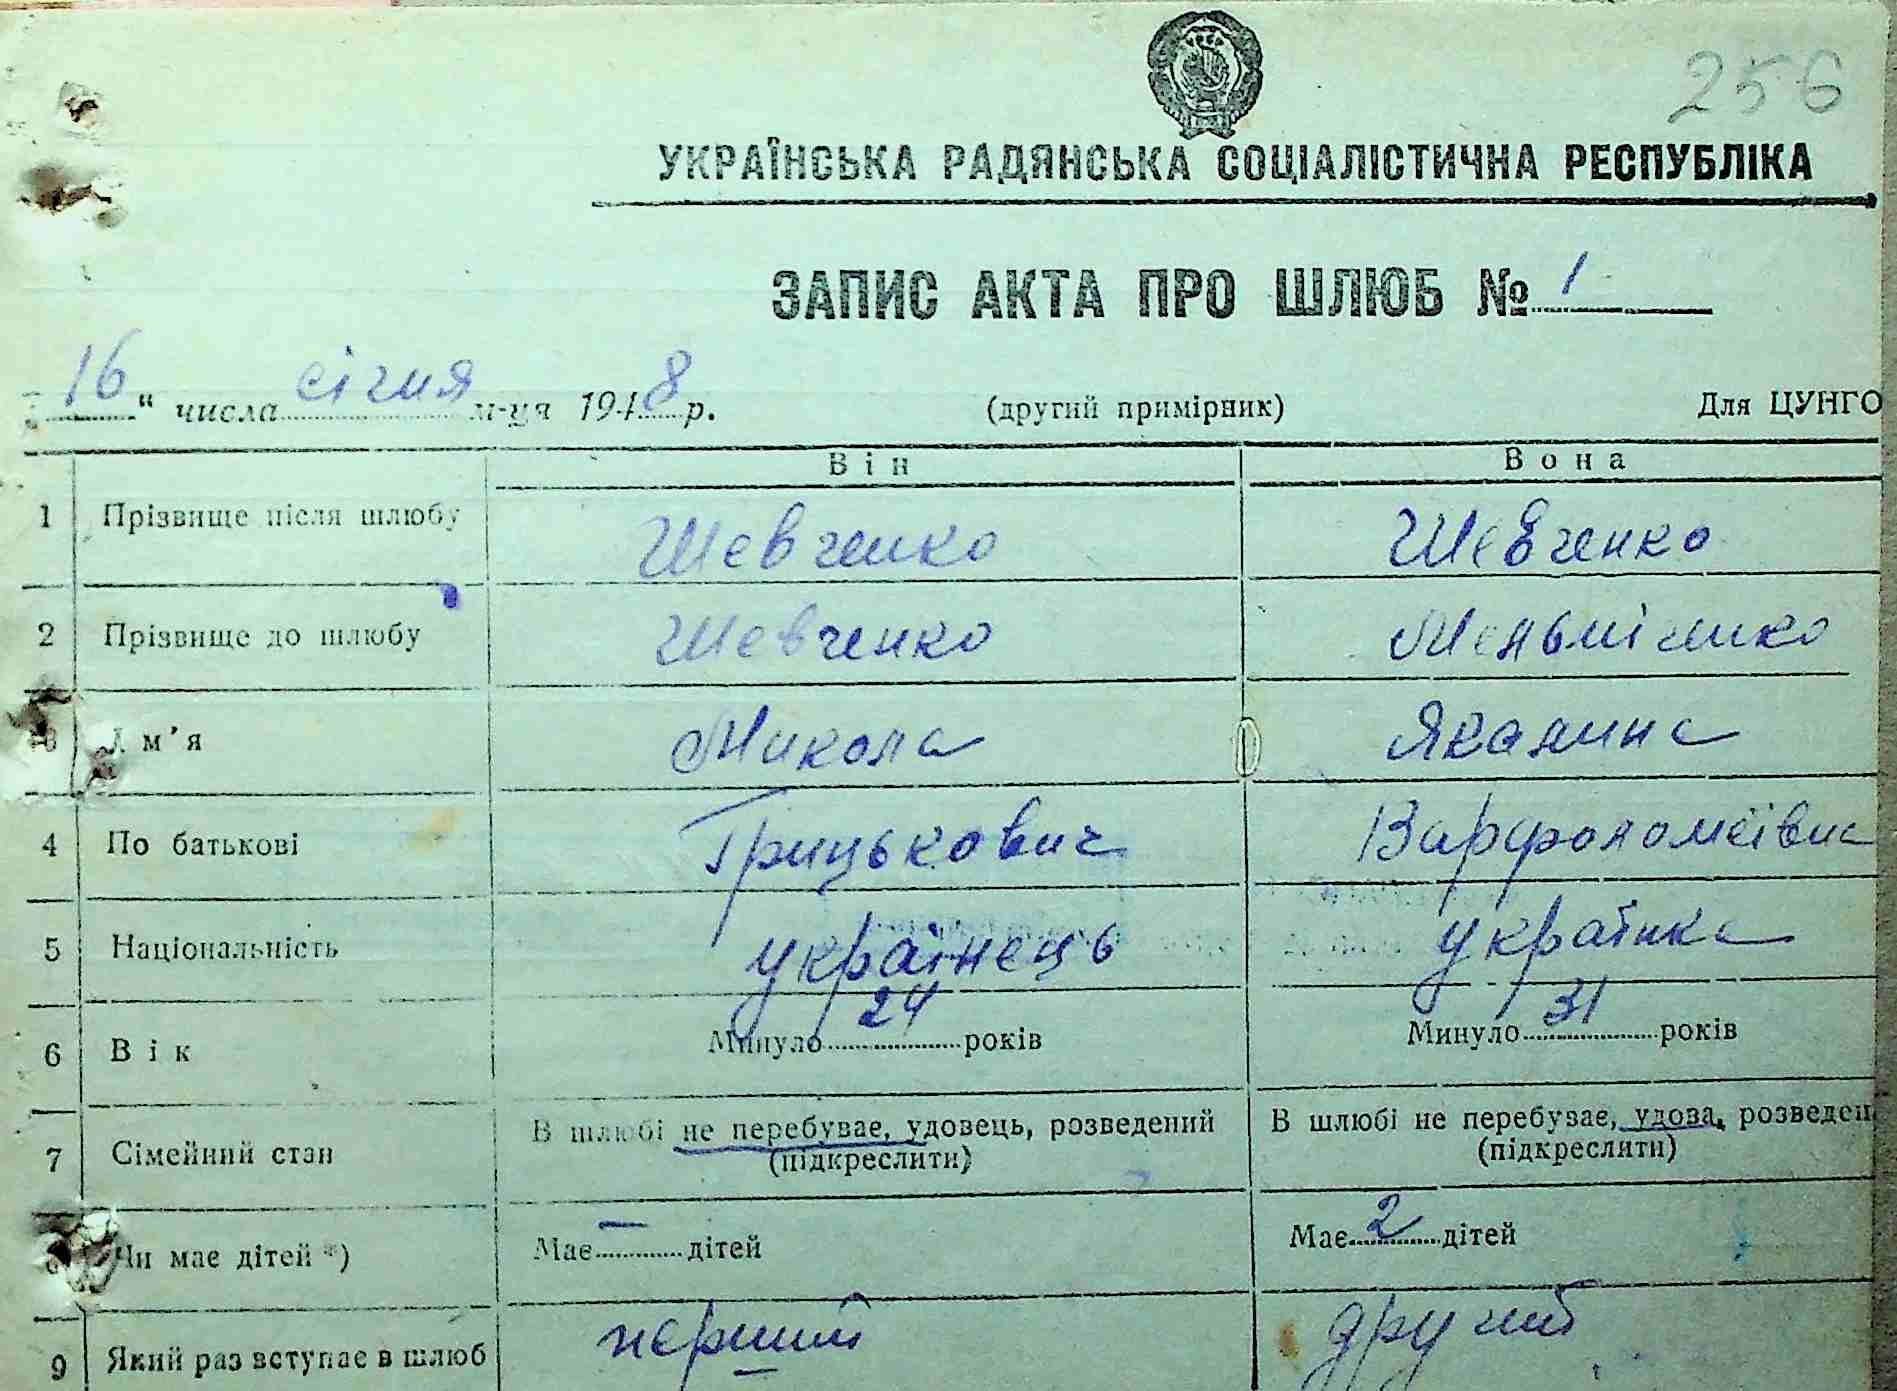 256
УКРАЇНСЬКА РАДЯНСЬКА СОЦІАЛІСТИЧНА РЕСПУБЛІКА
ЗАПИС АКТА ПРО ШЛЮБ № 1
16 " числа січня м-ця 1948 р. (другий примірник) Для ЦУНГО
Він Вона
1 Прізвище після шлюбу Шевченко Шевченко
2 Прізвище до шлюбу Шевченко
м'я Микола
4 По батькові Грицькович Варфоломеївна
5 Національність українець українка
6 Вік Минуло 24 років Минуло 31 років
7 Сімейний стан В шлюбі не перебуває, удовець, розведений В шлюбі не перебуває, удова, розведен
(підкреслити) (підкреслити)
Чи має дітей *) Має — дітей Має 2 дітей
9 Який раз вступає в шлюб перший другий